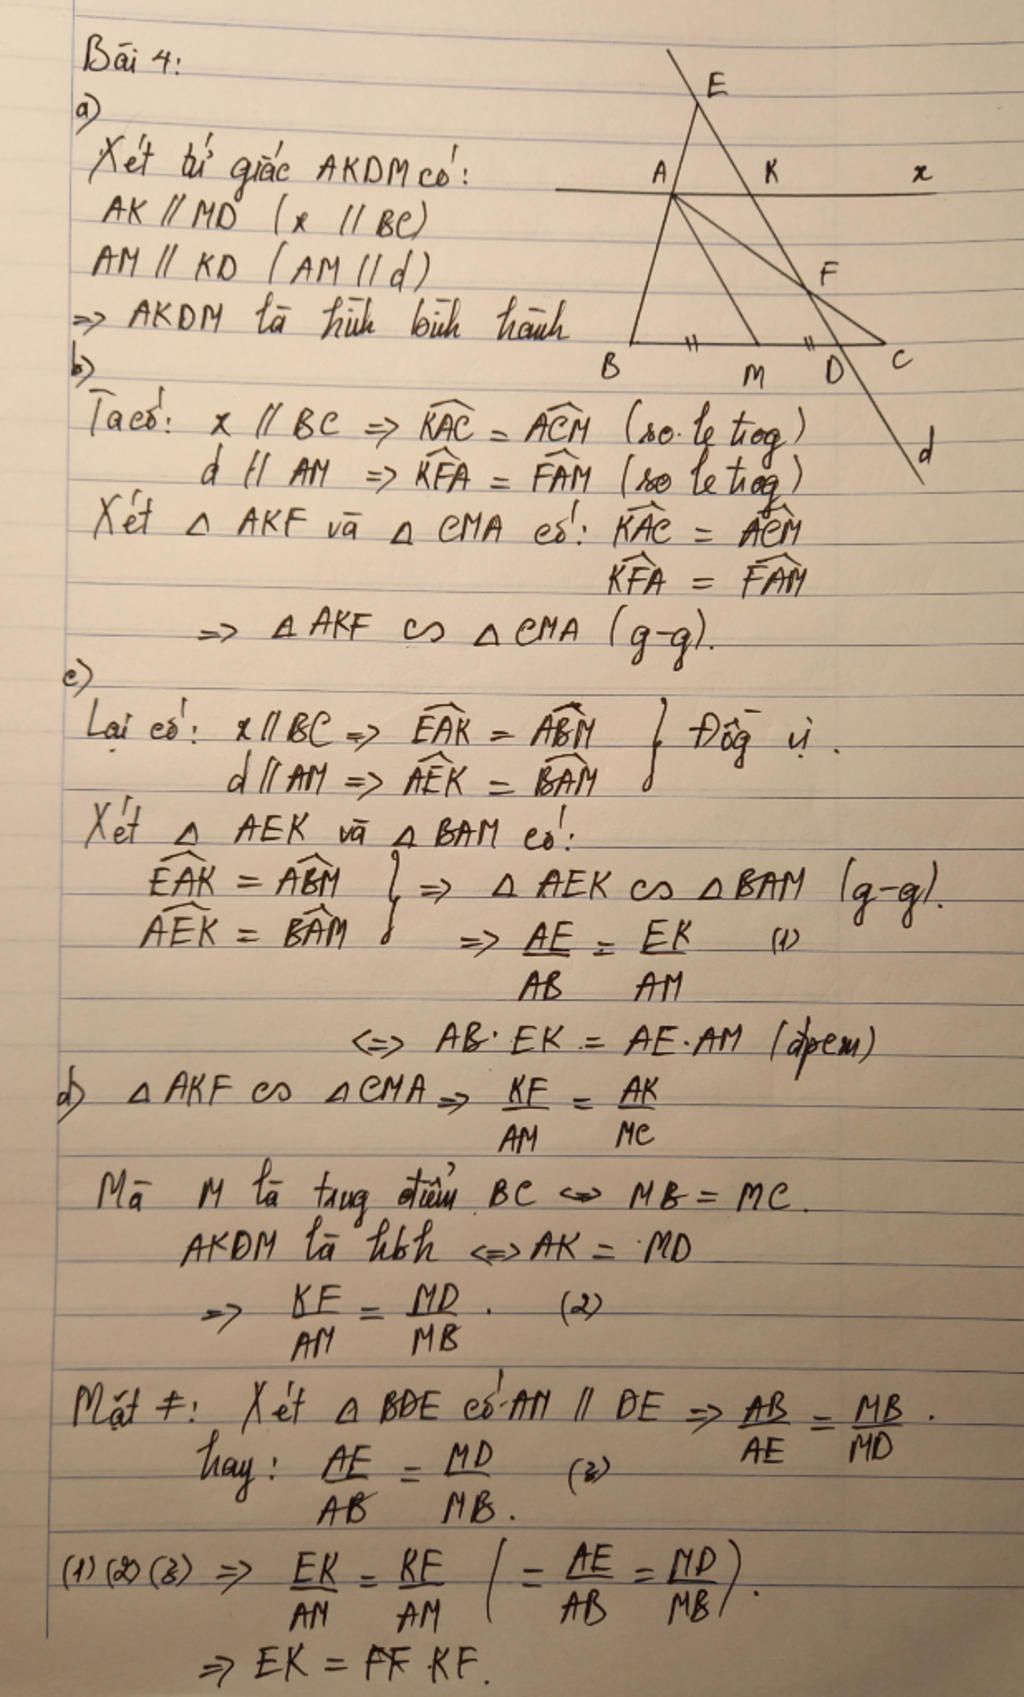 Bài 4:
a)
Xét tứ giác AKDM có:
AK // MD (x // BC)
AM // KD (AM // d)
=> AKDM là hìh bìh hàh
E
A
K
x
F
B
M
D
C
d
b)
Ta có: x // BC => K̂AC = ÂCM (so. le trog)
d // AM => K̂FA = F̂AM (so le trog)
Xét Δ AKF và Δ CMA có: K̂AC = ÂCM
K̂FA = F̂AM
=> Δ AKF ∽ Δ CMA (g-g).
c)
Lại có: x // BC => ÊAK = ÂBM } Đồg vị.
d // AM => ÂEK = B̂AM
Xét Δ AEK và Δ BAM có:
ÊAK = ÂBM } => Δ AEK ∽ Δ BAM (g-g).
ÂEK = B̂AM => AE/AB = EK/AM (1)
<=> AB. EK = AE. AM (đpcm)
d) Δ AKF ∽ Δ CMA => KF/AM = AK/MC
Mà M là trug điểm BC <=> MB = MC.
AKDM là hbh <=> AK = MD
=> KF/AM = MD/MB. (2)
Mặt ≠: Xét Δ BDE có AM // DE => AB/AE = MB/MD.
hay: AE/AB = MD/MB. (3)
(1) (2) (3) => EK/AM = KF/AM (= AE/AB = MD/MB).
=> EK = KF.